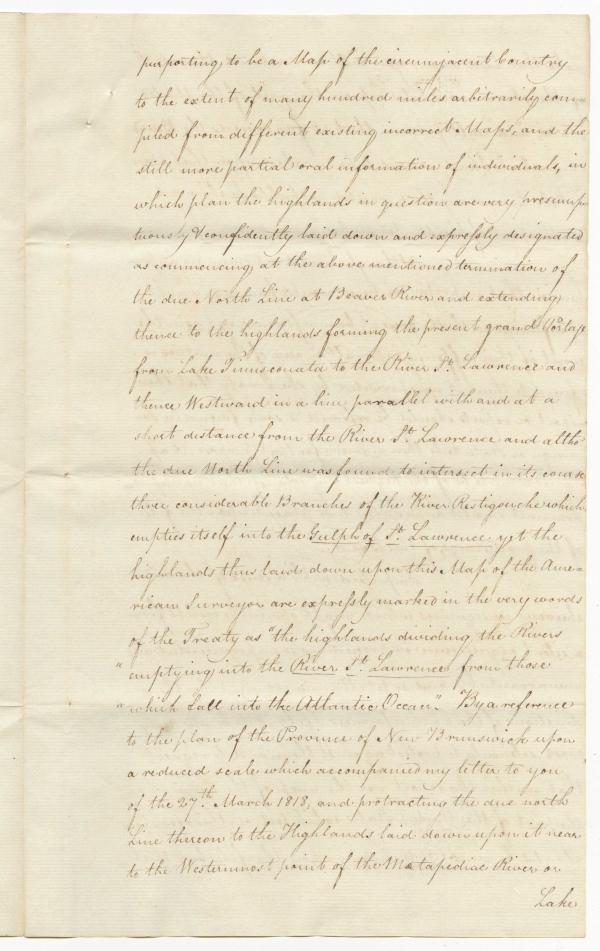 purporting to be a Map of the circumjacent Country
to the extent of many hundred miles arbitrarily com-
piled from different existing incorrect Maps, and the
still more partial oral information of individuals, in
which plan the highlands in question are very presump-
tuously & confidently laid down and expressly designated
as commencing at the above mentioned termination of
the due North Line at Beaver River and extending
thence to the highlands forming the present grand Portage
from Lake Timisconata to the River St. Lawrence and
thence Westward in a line parallel with and at a
short distance from the River St. Lawrence and altho'
the due North Line was found to intersect in its course
three considerable Branches of the River Restigouche which
empties itself into the Gulph of St. Lawrence yet the
highlands thus laid down upon this Map of the Ame-
rican Surveyor are expressly marked in the very words
of the Treaty as "the highlands dividing the Rivers
" emptying into the River St. Lawrence from those
" which fall into the Atlantic Ocean". By a reference
to the plan of the Province of New Brunswick upon
a reduced scale which accompanied my letter to you
of the 27th. March 1818, and protracting the due north
Line thereon to the Highlands laid down upon it near
to the Westernmost point of the Matapediac River or
Lake